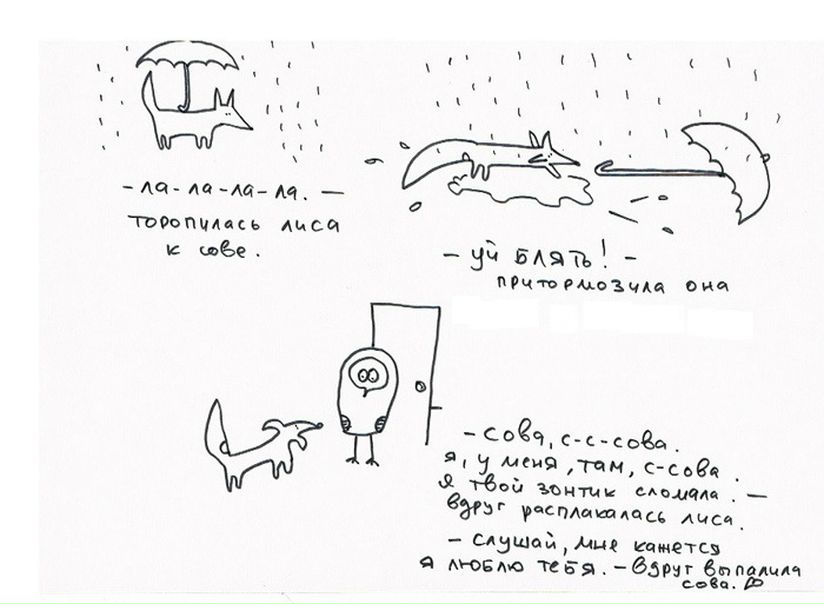 - ла- ла -ла- ла. —
торопилась лиса
к сове.
- уй блять! -
притормозила она
- сова, с-с-сова.
я, у меня, там, с-сова.
я твой зонтик сломала. —
вдруг расплакалась лиса.
- слушай, мне кажется
я люблю тебя. - вдруг выпалила
сова.